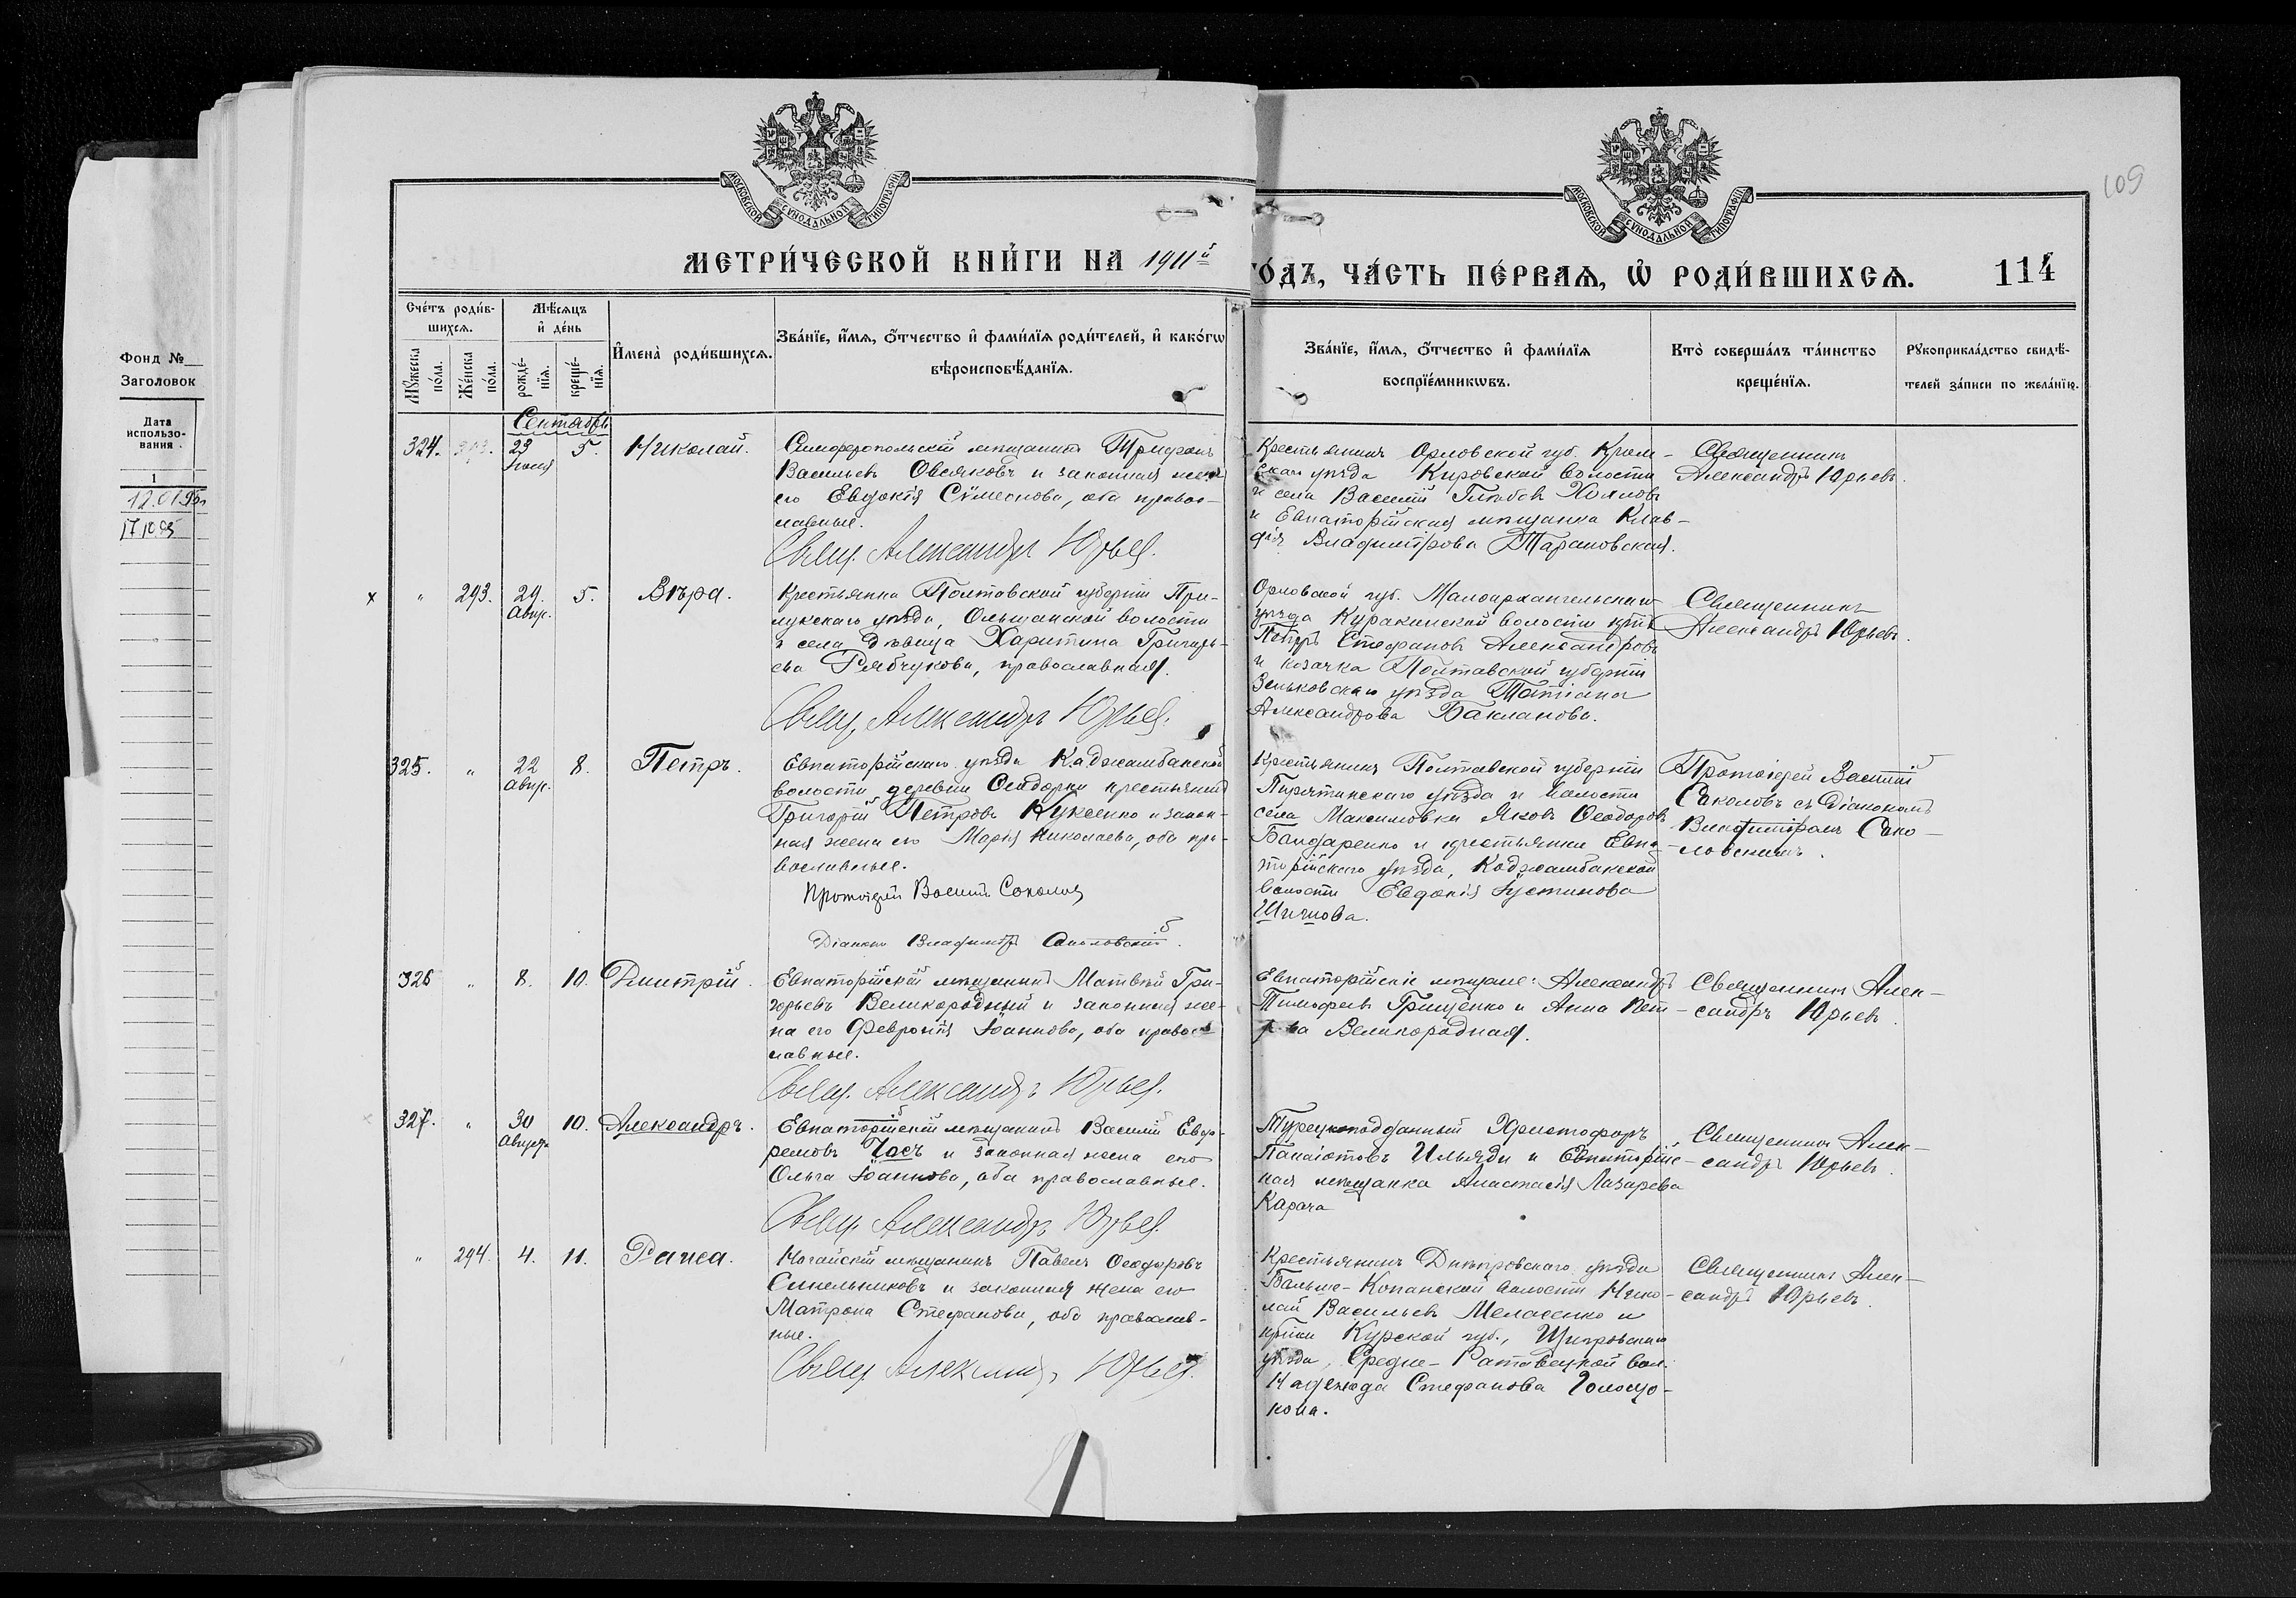 109
МОСКОВСКОЙ СУНОДАЛЬНОЙ ТИПОГРАФІИ
МОСКОВСКОЙ СУНОДАЛЬНОЙ ТИПОГРАФІИ
МЕТРИ́ЧЕСКОЙ КНИ́ГИ НА 1911й
ГО́ДЪ, ЧА́СТЬ ПЕ́РВАѦ, Ѽ РОДИ́ВШИХСѦ. 114
Фонд №
Заголовок
Дата
использо-
вания
1
Сче́тъ роди́в-
шихсѧ.
Мѣ́сѧцъ
и҆ де́нь
Мꙋ́жеска
по́ла.
Же́нска
по́ла.
рожде́-
нїѧ.
креще́-
нїѧ.
И҆мена̀ роди́вшихсѧ.
Зва́нїе, и҆́мѧ, ѻ҆́тчество и҆ фами́лїѧ роди́телей, и҆ како́гѡ
вѣроисповѣ́данїѧ.
Зва́нїе, и҆́мѧ, ѻ҆́тчество и҆ фами́лїѧ
воспрїе́мникѡвъ.
Кто̀ соверша́лъ та́инство
креще́нїѧ.
Рꙋкоприкла́дство свидѣ́-
телей за́писи по жела́нїю.
Сентябрь
324. 23 Іюля 5. Николай.
Симферопольскій мѣщанинъ Трифонъ
Васильевъ Овсяковъ и законная жена
его Евдокія Сѵмеонова, оба право-
славные.
Свящ. Александръ Юрьев.
Крестьянинъ Орловской губ. Кром-
скаго уѣзда Кировской волости
и села Василій Глѣбовъ Хохловъ
и Евпаторійская мѣщанка Клав-
дія Владимірова Тарановская.
Священникъ
Александръ Юрьевъ.
х " 293. 29. Авгус. 5. Вѣра.
Крестьянка Полтавской губерніи При-
лукскаго уѣзда, Ольшанской волости
и села дѣвица Харитина Григорь-
ева Рябчукова, православная.
Свящ. Александръ Юрьев.
Орловской губ. Малоархангельскаго
уѣзда Куракинской волости кр-нъ
Петръ Стефановъ Александровъ
и козачка Полтавской губерніи
Зеньковскаго уѣзда Татіана
Александрова Бакланова.
Священникъ
Александръ Юрьевъ.
325. " 22 Авгус. 8. Петръ.
Евпаторійскаго уѣзда Каджамбакской
волости, деревни крестьянинъ
Григорій Петровъ Кукеенко и закон-
ная жена его Марія Николаева, оба пра-
вославные.
Протоіерей Василій Соколов
Діаконъ Владиміръ Соколовскій.
Крестьянинъ Полтавской губерніи
Пирятинскаго уѣзда и волости
села Максимовки Яковъ Ѳеодоровъ
Бандаренко и крестьянка Евпа-
торійскаго уѣзда, Коджамбакской
волости Евдокія Іустинова
Шичнова.
Протоіерей Василій
Соколовъ съ Діакономъ
Владиміромъ Соко-
ловскимъ.
326 " 8. 10. Димитрій.
Евпаторійскій мѣщанинъ Матвѣй Гри-
горьевъ Великородный и законная же-
на его Февронія Іоаннова, оба право-
славные.
Свящ. Александръ Юрьев.
Евпаторійскіе мѣщане: Александръ
Тимофеевъ Грищенко и Анна Пет-
рова Великородная.
Священникъ Алек-
сандръ Юрьев.
327. " 30 Августа 10. Александръ.
Евпаторійскій мѣщанинъ Василій Евф-
ремовъ Часъ и законная жена его
Ольга Іоаннова, оба православные.
Свящ. Александръ Юрьев.
Турецкоподданный Христофоръ
Панаіотовъ Ильяди и Евпаторій-
ская мѣщанка Анастасія Лазарева
Карача
Священникъ Алек-
сандръ Юрьевъ.
" 294. 4. 11. Раиса.
Ногайскій мѣщанинъ Павелъ Ѳеодоровъ
Синельниковъ и законная жена его
Матрона Стефанова, оба православ-
ные.
Свящ. Александръ Юрьев.
Крестьянинъ Днѣпровскаго уѣзда
Больше-Копанской волости Нико-
лай Васильевъ Мелашенко и
кр-нка Курской губ., Щигровскаго
уѣзда, Средне- вол.
Надежда Стефанова Голощо-
кова.
Священникъ Алек-
сандръ Юрьевъ.